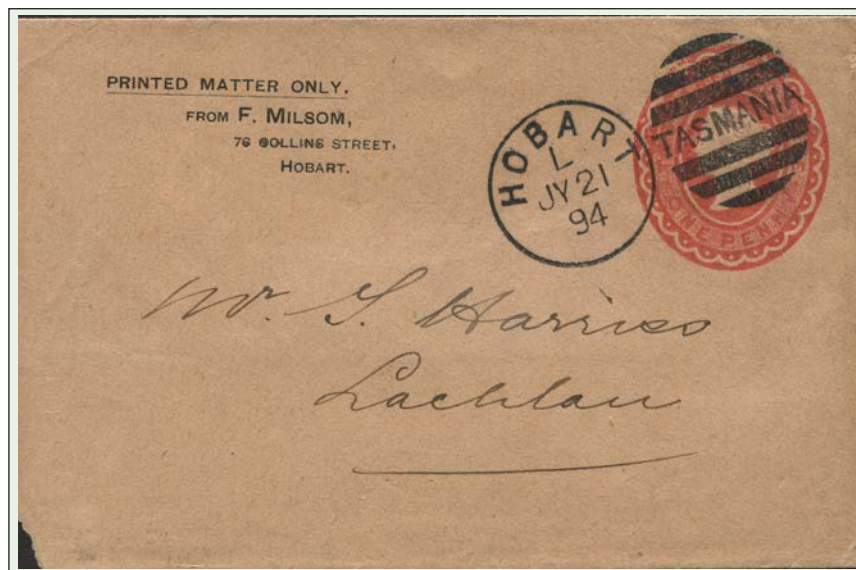 PRINTED MATTER ONLY.
FROM F. MILSOM,
76 COLLINS STREET,
HOBART.
HOBART
L
JY 21
94
TASMANIA
ONE PENNY
Mr. S. Harriss
Lachlan